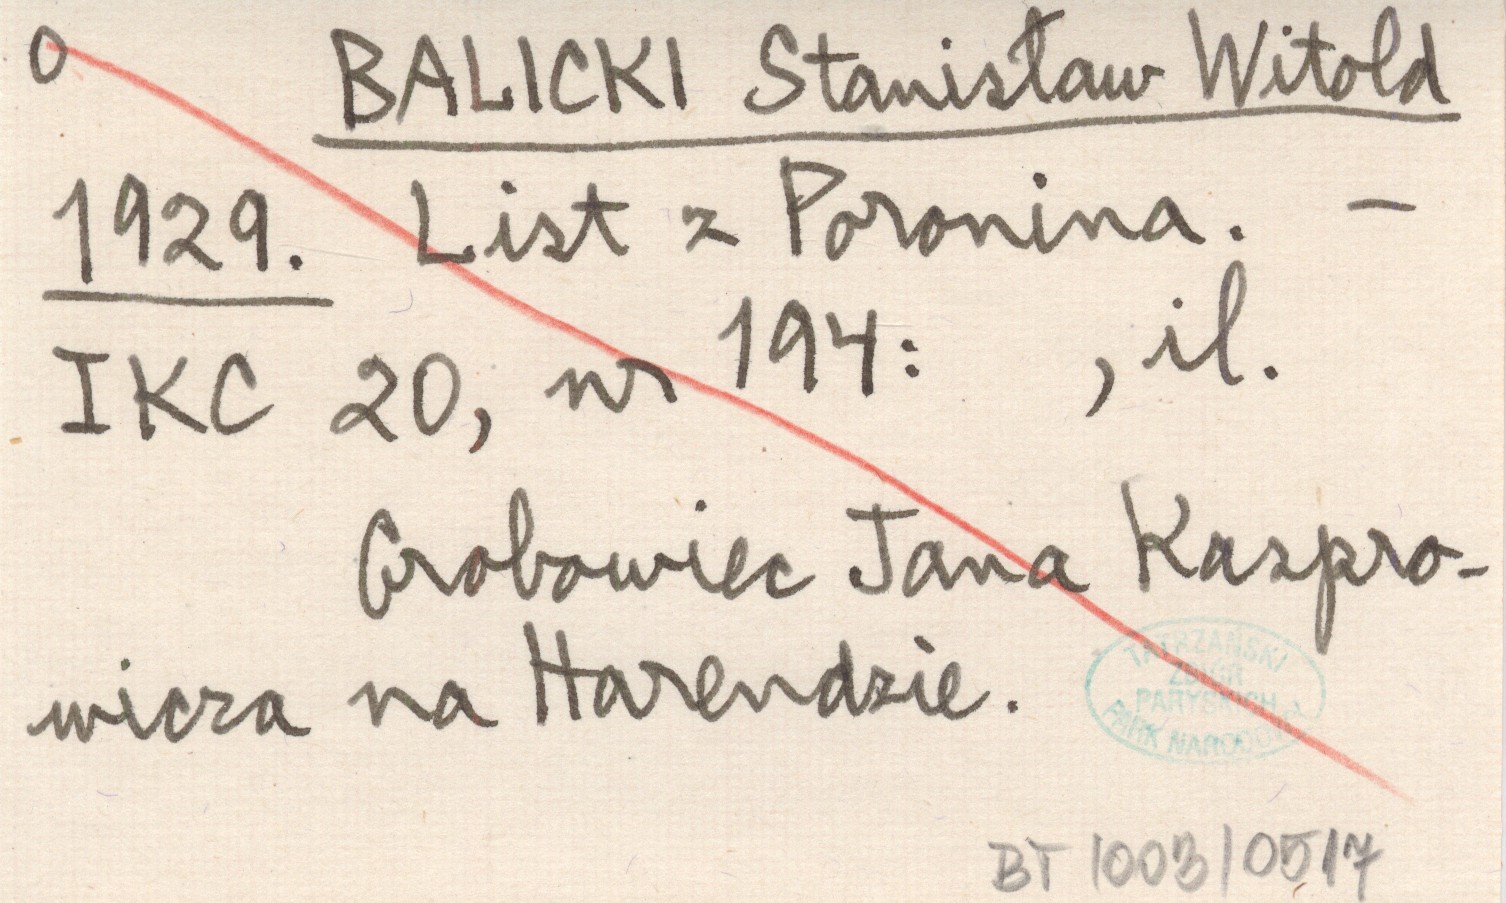 O BALICKI Stanisław Witold
1929. List z Poronina. –
IKC 20, nr 194: , il.
Grobowiec Jana Kaspro-
wicza na Harendzie.
TATRZAŃSKI
ZBIÓR
PARYSKICH
PARK NARODOWY
BT 1003/0517